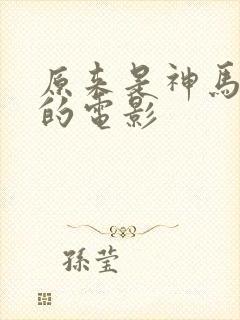 原来是神馬
的電影
孫莹